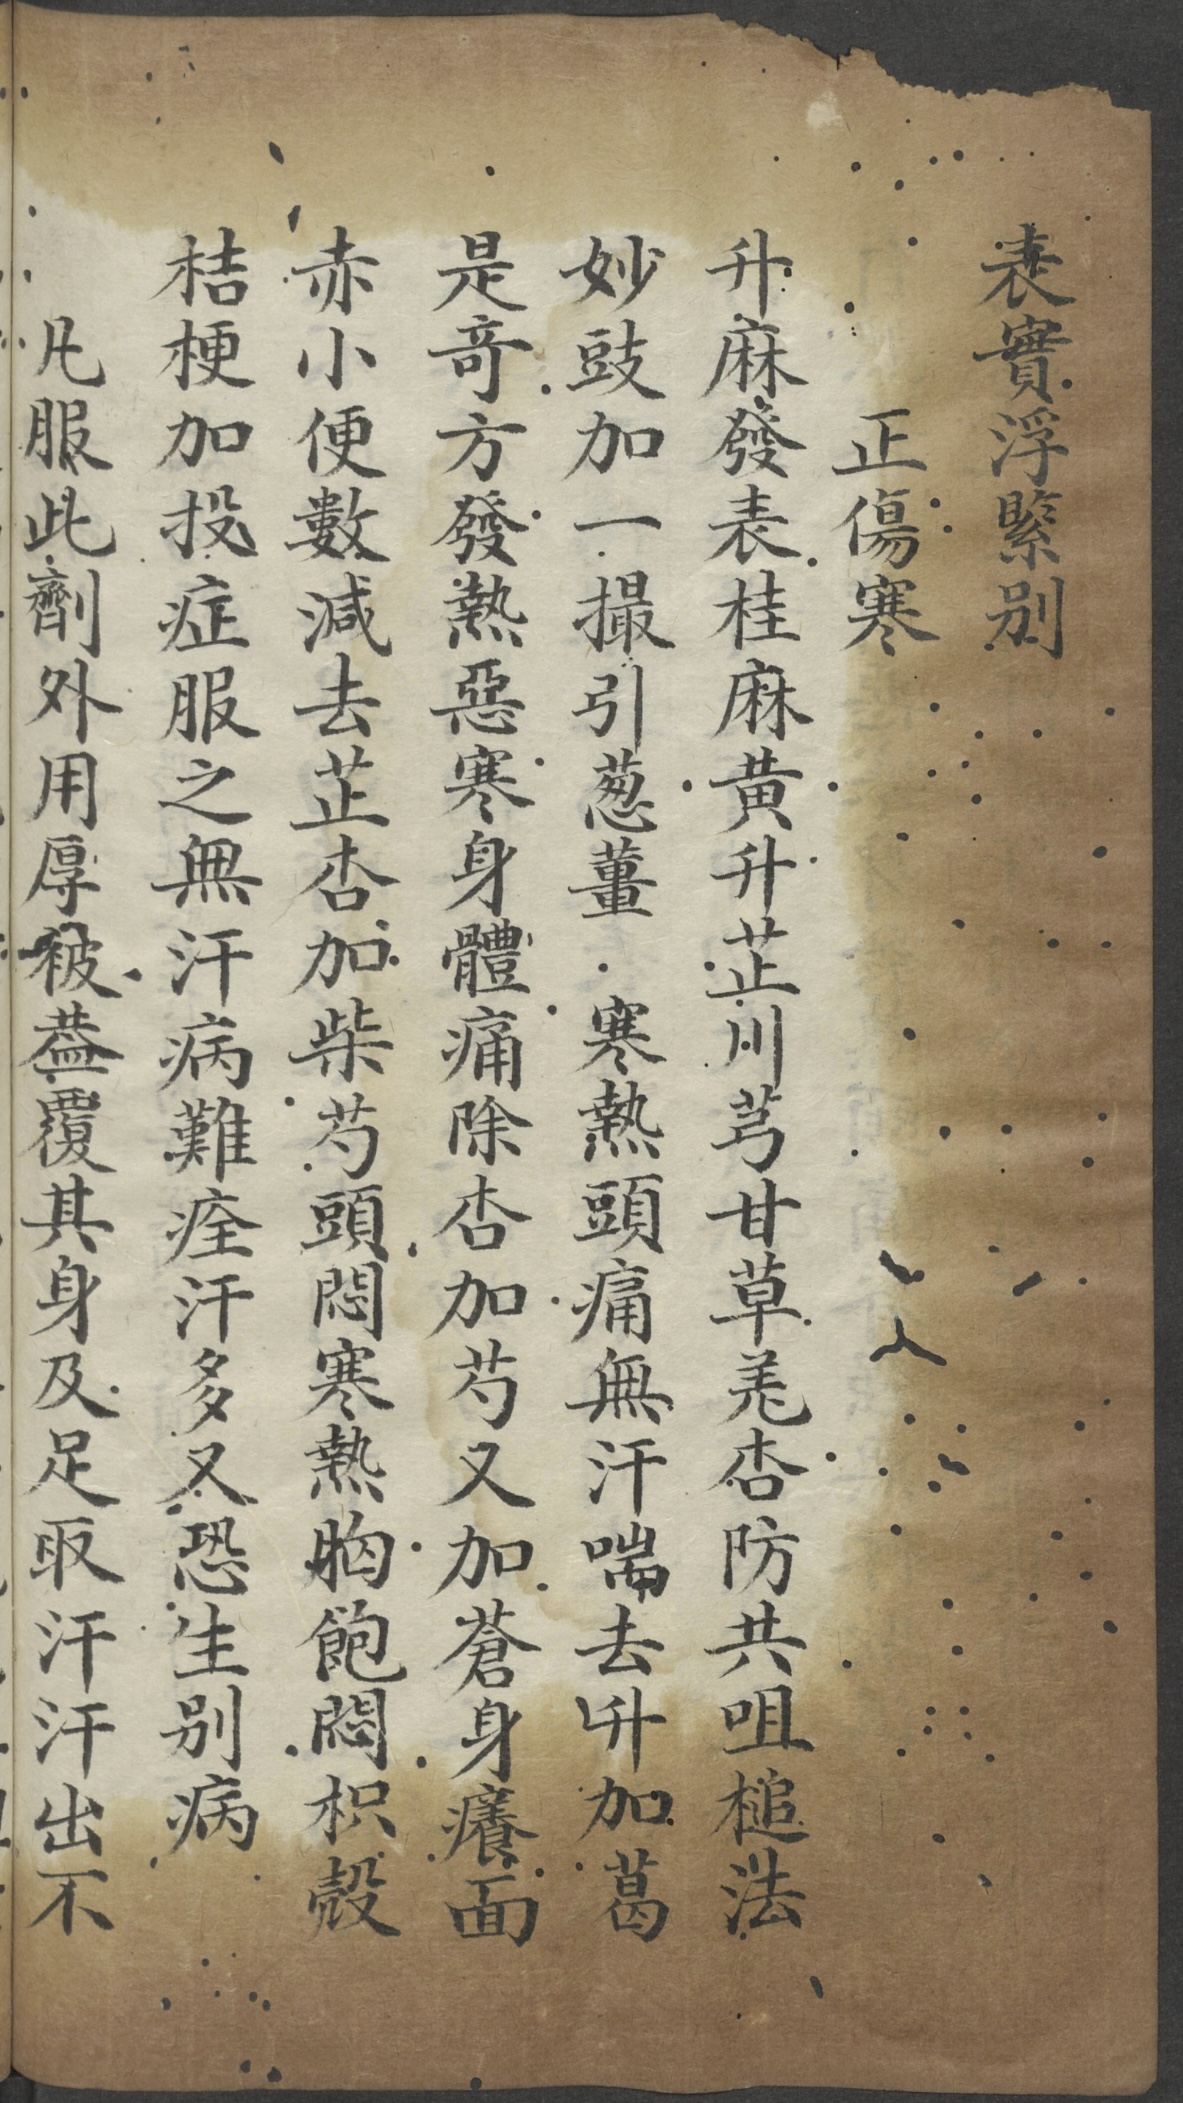 表實浮緊别
正傷寒
升麻發表桂麻黄升芷川芎甘草羌杏防共咀槌法
妙豉加一撮引葱薑寒熱頭痛無汗喘去升加葛
是竒方發熱惡寒身體痛除杏加芍又加蒼身癢面
赤小便數減去芷杏加柴芍頭悶寒熱胸飽悶枳殻
桔梗加投症服之無汗病難痊汗多又恐生别病
凡服此劑外用厚被葢覆其身及足取汗汗出不